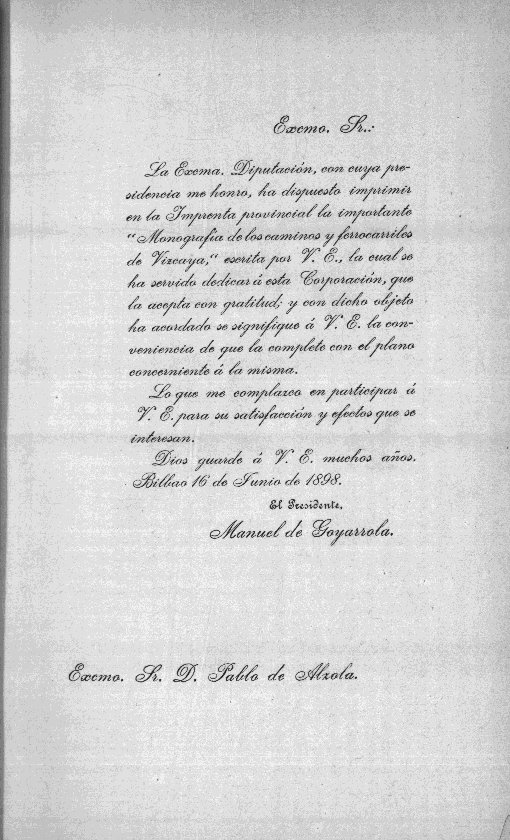 Excmo. Sr.:
La Excma. Diputación, con cuya pre-
sidencia me honro, ha dispuesto imprimir
en la Imprenta provincial la importante
“Monografía de los caminos y ferrocarriles
de Vizcaya,“ escrita por V. E., la cual se
ha servido dedicar á esta Corporación, que
la acepta con gratitud; y con dicho objeto
ha acordado se signifique á V. E. la con-
veniencia de que la complete con el plano
concerniente á la misma.
Lo que me complazco en participar á
V. E. para su satisfacción y efectos que se
interesan.
Dios guarde á V. E. muchos años.
Bilbao 16 de Junio de 1898.
El Presidente,
Manuel de Goyarrola.
Excmo. Sr. D. Pablo de Alzola.